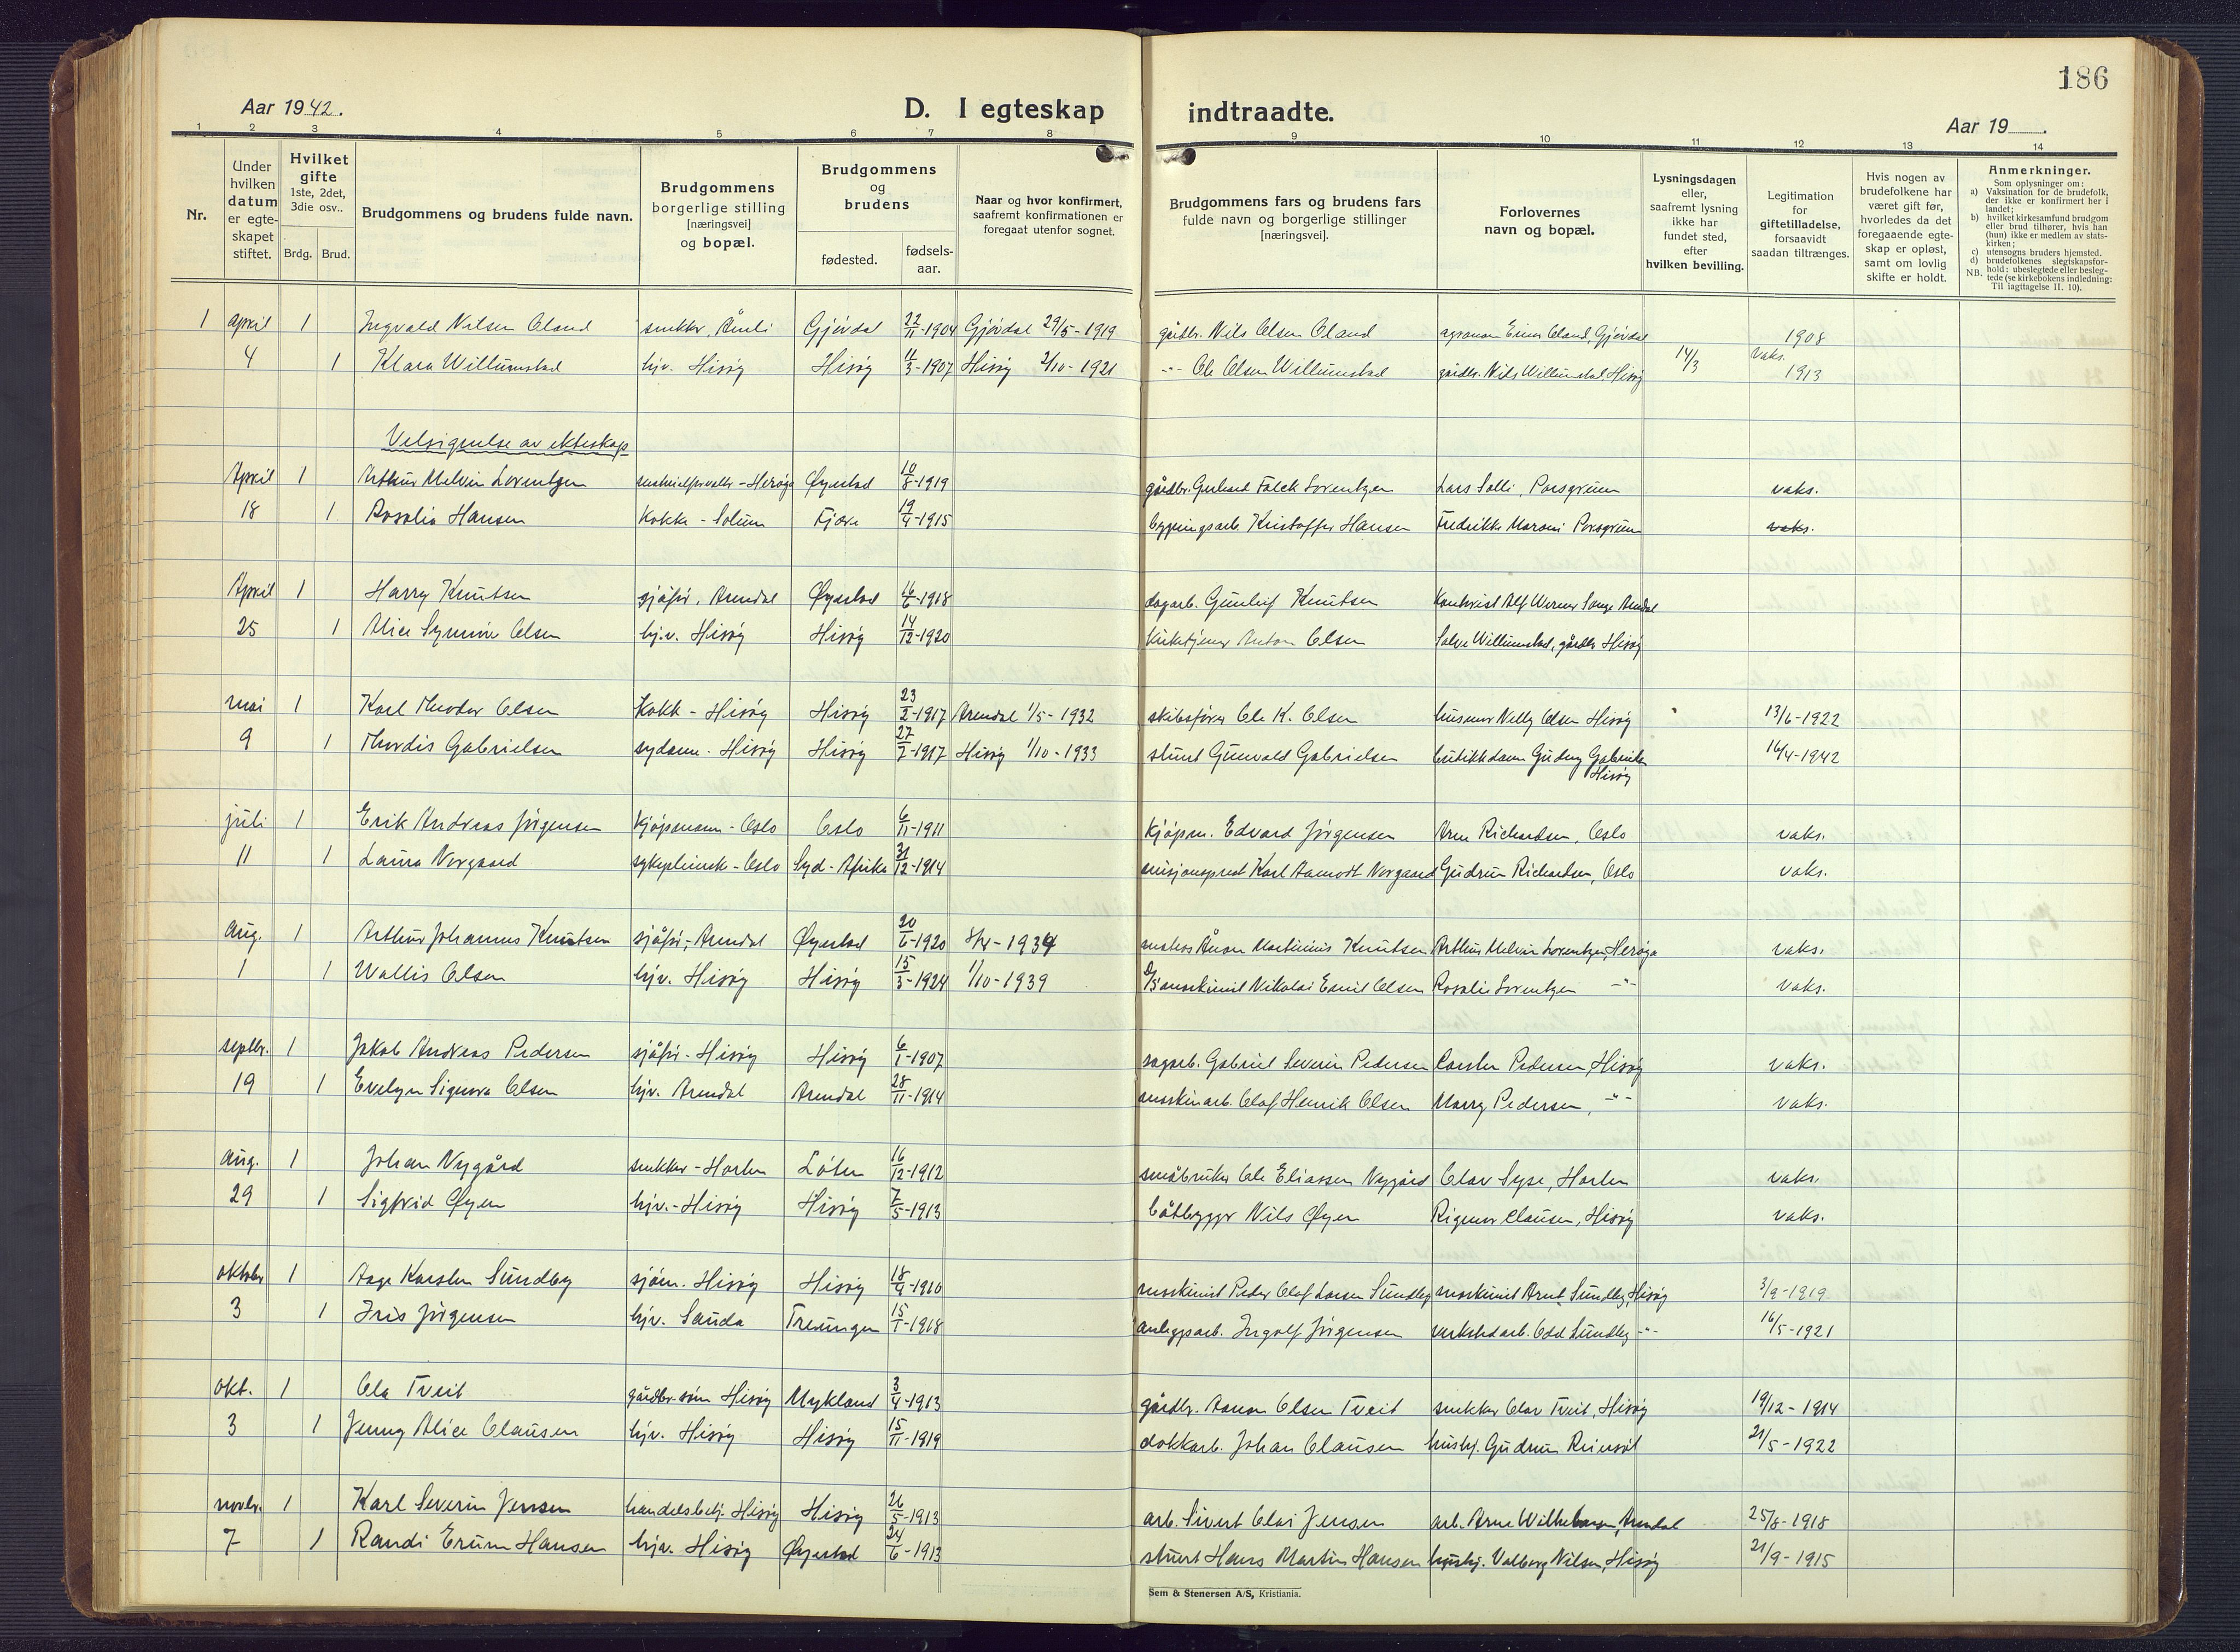 186
Aar 1942.
D. I egteskap indtraadte.
Aar 19
1 2 3 4 5 6 7 8 9 10 11 12 13 14
Nr.
Under hvilken datum er egte-skapet stiftet.
Hvilket gifte 1ste, 2det, 3die osv..
Brdg. Brud.
Brudgommens og brudens fulde navn.
Brudgommens borgerlige stilling [næringsvei] og bopæl.
Brudgommens og brudens
fødested. fødsels-aar.
Naar og hvor konfirmert, saafremt konfirmationen er foregaat utenfor sognet.
Brudgommens fars og brudens fars fulde navn og borgerlige stillinger [næringsvei].
Forlovernes navn og bopæl.
Lysningsdagen eller, saafremt lysning ikke har fundet sted, efter hvilken bevilling.
Legitimation for giftetilladelse, forsaavidt saadan tiltrænges.
Hvis nogen av brudefolkene har været gift før, hvorledes da det foregaaende egte-skap er opløst, samt om lovlig skifte er holdt.
Anmerkninger.
Som oplysninger om:
a) Vaksination for de brudefolk, der ikke er konfirmert her i landet;
b) hvilket kirkesamfund brudgom eller brud tilhører, hvis han (hun) ikke er medlem av stats-kirken;
c) utensogns bruders hjemsted.
d) brudefolkenes slegtskapsfor-hold: ubeslegtede eller besleg-tede (se kirkebokens indledning: Til iagttagelse II. 10).
NB.
1 April 1 Ingvald Nilsen Oland snekker, Åmli Gjøvdal 22/11-1904 Gjøvdal 29/5-1919 gårdbr. Nils Olsen Oland agronom Einar Oland, Gjøvdal 1908
4 1 Klara Willumstad hjv. Hisøy Hisøy 11/3-1907 Hisøy 2/10-1921 -"- Ole Olsen Willumstad gårdbr. Nils Willumstad, Hisøy 14/3 Vaks. 1913
Velsignelse av ekteskap
April 1 Arthur Melvin Lorentzen Herøya Øyestad 10/8-1919 gårdbr. Gerhard Falck Lorentzen Lars Solli, Porsgrunn vaks.
18 1 Rosalie Hansen Kokke - Solum Fjære 19/4-1915 bygningsarb. Kristoffer Hansen Fredrikke Maroni Porsgrunn vaks.
April 1 Harry Knutsen sjåfør, Arendal Øyestad 16/6-1918 dagarb. Gunleif Knutsen Kontorist Alf Werner Songe Arendal
25 1 Alice Synnøve Olsen hj.v. Hisøy Hisøy 14/12-1920 Kirketjener Anton Olsen Salve Willumstad, gårdbr. Hisøy
mai 1 Karl Theodor Olsen Kokk - Hisøy Hisøy 23/2-1917 Arendal 1/5-1932 skibsfører Ole K. Olsen husmor Nelly Olsen Hisøy 13/6-1922
9 1 Thordis Gabrielsen sydame - Hisøy Hisøy 27/7-1917 Hisøy 1/10-1933 stuert Gunvald Gabrielsen butikkdame Gudny Gabrielsen Hisøy 16/4-1942
juli 1 Erik Andreas Jørgensen Kjøpmann - Oslo Oslo 6/11-1911 Kjøpm. Edvard Jørgensen Arne Richardsen, Oslo vaks.
11 1 Laura Norgaard sykepleiersk - Oslo Syd-Afrika 31/12-1914 misjonsprest Karl Aamodt Norgaard Gudrun Richardsen, Oslo vaks.
Aug. 1 Arthur Johannes Knutsen sjåfør, - Arendal Øyestad 20/6-1920 -1934 Martinius Knutsen Arthur Melvin Lorentzen, Herøya vaks.
1 1 Wallis Olsen hjv. Hisøy Hisøy 15/3-1924 1/10-1939 maskinist Nikolai Emil Olsen Rosalie Lorentzen -"- vaks.
septbr. 1 Jakob Andreas Pedersen sjåfør - Hisøy Hisøy 6/1-1907 sagarb. Gabriel Severin Pedersen Carsten Pedersen, Hisøy vaks.
19 1 Evelyn Signora Olsen hjv. Arendal Arendal 28/11-1914 maskinarb. Olaf Henrik Olsen Marry Pedersen, -"- vaks.
Aug. 1 Johan Nygård snekker - Horten Løten 16/12-1912 småbruker Ole Eliassen Nygård Olav Syse, Horten vaks.
29 1 Sigfrid Øyen hjv. - Hisøy Hisøy 7/5-1913 båtbygger Nils Øyen Rigmor Clausen, Hisøy vaks.
oktober 1 Aage Karsten Sundby sjøm. Hisøy Hisøy 18/4-1910 maskinist Peder Olaf Larsen Sundby maskinist Arnt Sundby, Hisøy 3/9-1919
3 1 Iris Jørgensen hjv. Sauda Treungen 15/1-1918 anleggsarb. Ingolf Jørgensen verkstedarb. Odd Sundby -"- 16/5-1921
okt. 1 Ola Tveit gårdbr. sønn Hisøy Mykland 3/4-1913 gårdbr. Aanon Olsen Tveit snekker Olav Tveit, Hisøy 19/12-1914
3 1 Jenny Alice Clausen hjv. Hisøy Hisøy 15/11-1919 dokkarb. Johan Clausen hushj. Gudrun 21/5-1922
novbr. 1 Karl Severin Jensen handelsbetj. Hisøy Hisøy 26/5-1913 arb. Sivert Olai Jensen arb. Arne Wilhelmsen, Arendal 25/8-1918
7 1 Randi Erunn Hansen hjv. Hisøy Øyestad 24/6-1913 stuert Hans Martin Hansen hushj. Valborg Nilsen, Hisøy 21/9-1915
Sem & Stenersen A/S, Kristiania.